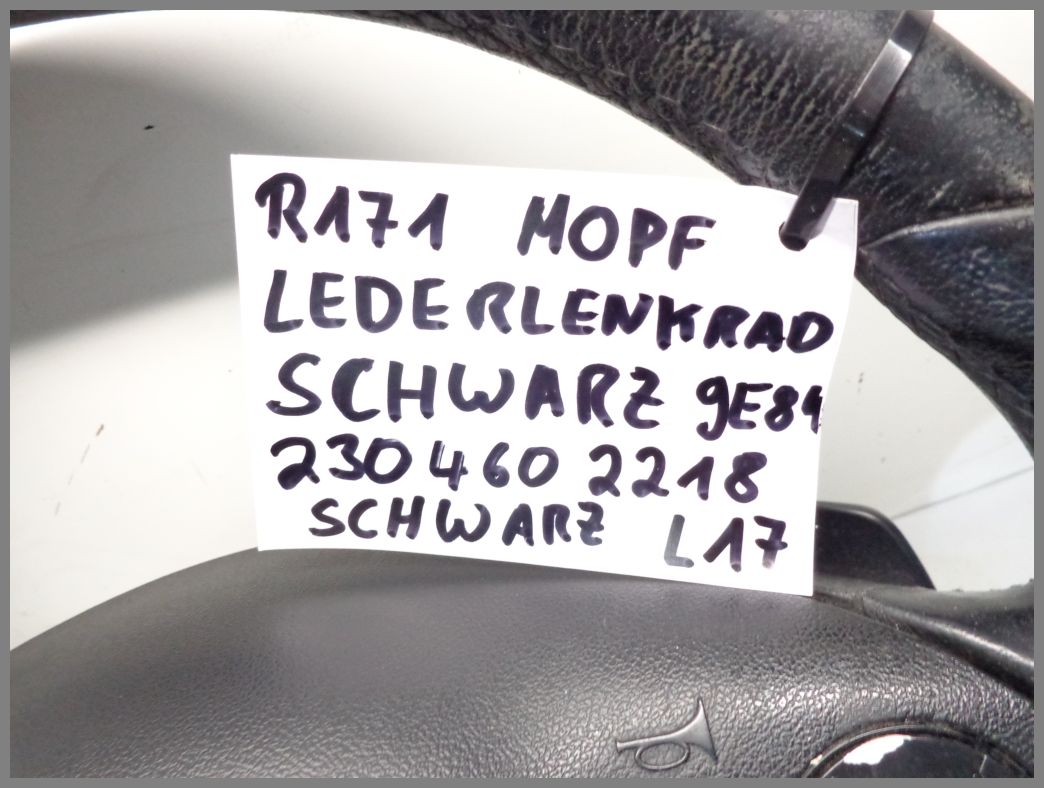 R171 MOPF
LEDERLENKRAD
SCHWARZ 9E84
230 460 2218
SCHWARZ L17